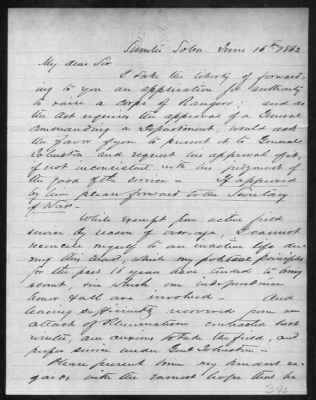 Sumter So Ca. June 16th 1862
My dear Sir
I take the liberty of forward-
ing to you an application for authority
to raise a Corps of Rangers; and as
the Act requires the approval of a General
Commanding a Department, would ask
the favor of you to present it to General
Johnston and request his approval of it,
if not inconsistent with his judgment of
the good of the service — If approved
by him please forward to the Secretary
of War —
While exempt from active field
service by reason of over-age, I cannot
reconcile myself to an inactive life du-
ring this War, while my political principles
for the past 18 years have tended to bring
about, one which our independence
honor & all are involved — And
having sufficiently recovered from an
attack of Rheumatism contracted last
winter, am anxious to take the field, and
prefer service under Genl Johnston —
Please present him my kindest re-
gards with the earnest hope that he